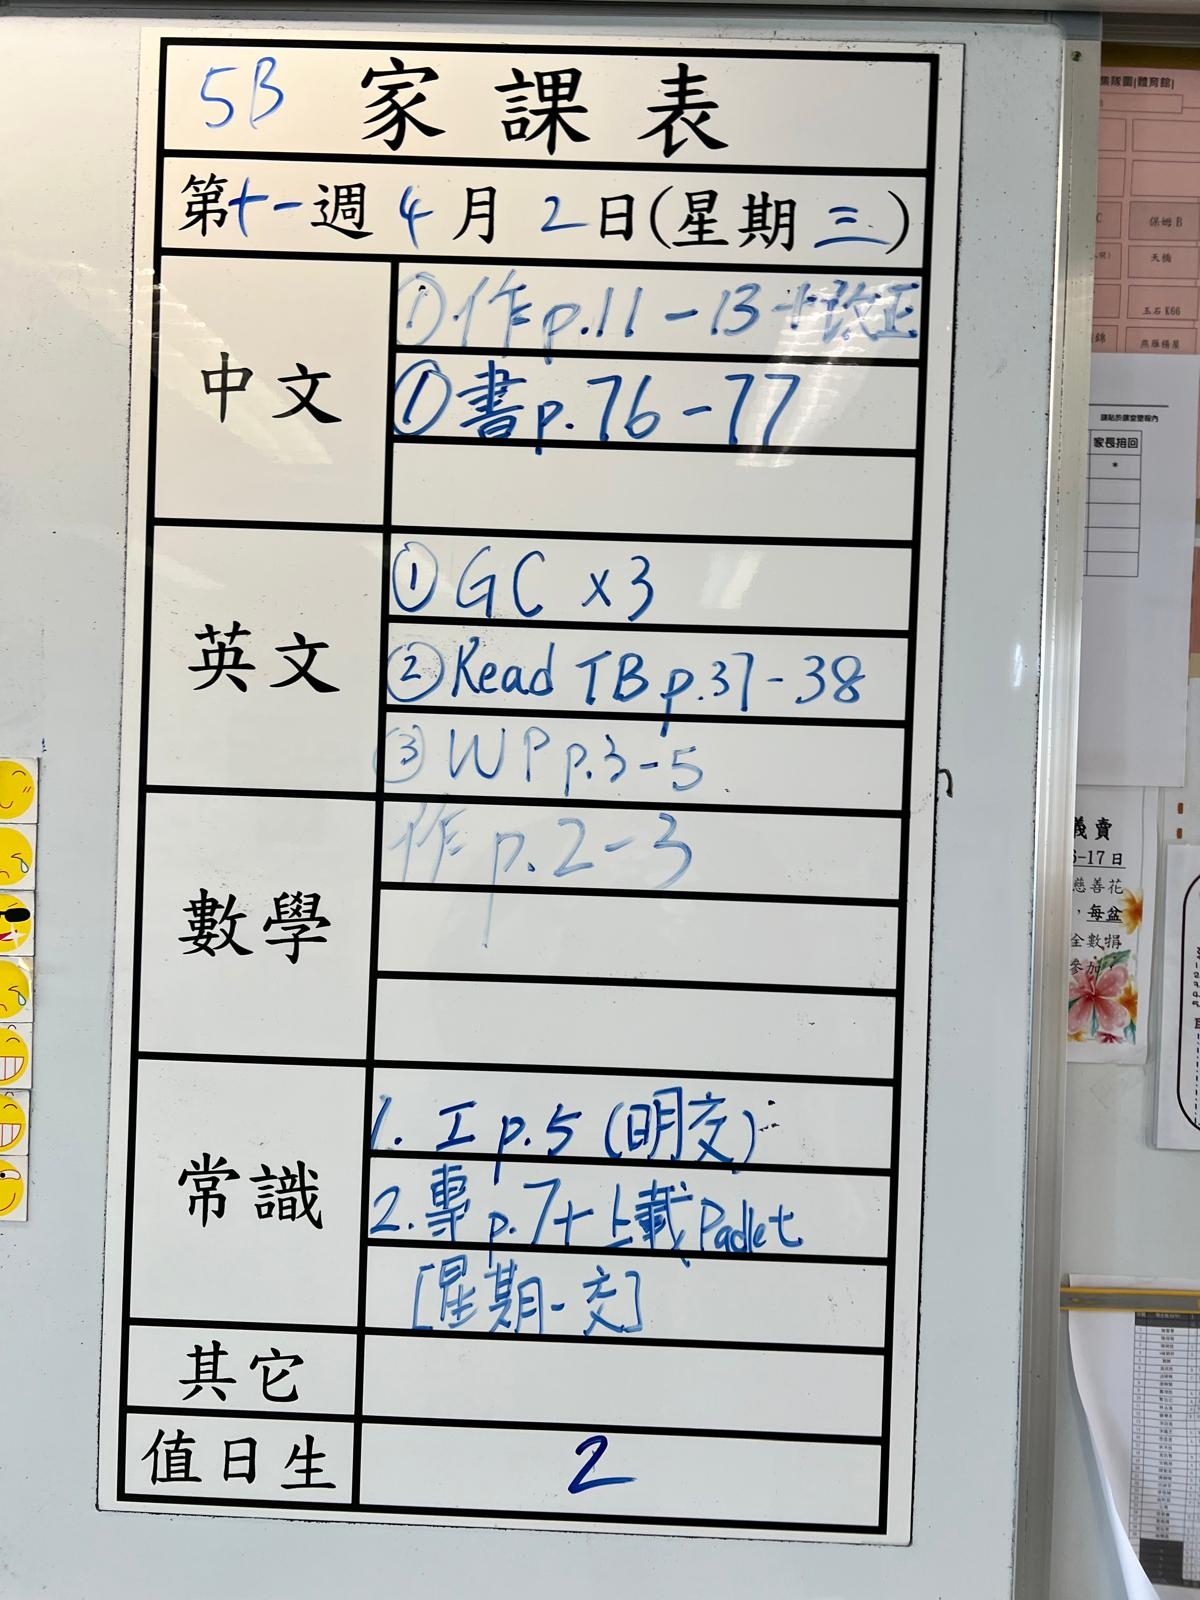 5B 家課表
第十一週 4月2日(星期三)
中文
① 作 p.11-13+改正
① 書 p.76-77
英文
① GC x3
② Read TB p.37-38
③ WP p.3-5
數學
作 p.2-3
常識
1. 工 p.5 (明交)
2. 專 p.7+上載 Padlet
[星期一交]
其它
值日生
2
集隊圖(體育館)
保姆B
天橋
玉石 K66
請貼於課室壁報內
家長接回
*
義賣
6-17日
慈善花
,每盆
全數捐
參加,